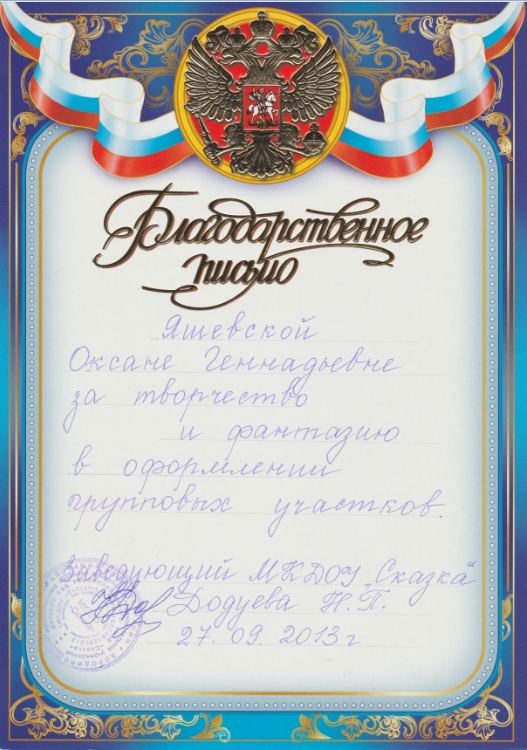 Благодарственное
письмо
Яшевской
Оксане Геннадьевне
за творчество
и фантазию
в оформлении
групповых участков.
Заведующий МКДОУ „Сказка“
Додуева Н.П.
27.09.2013г